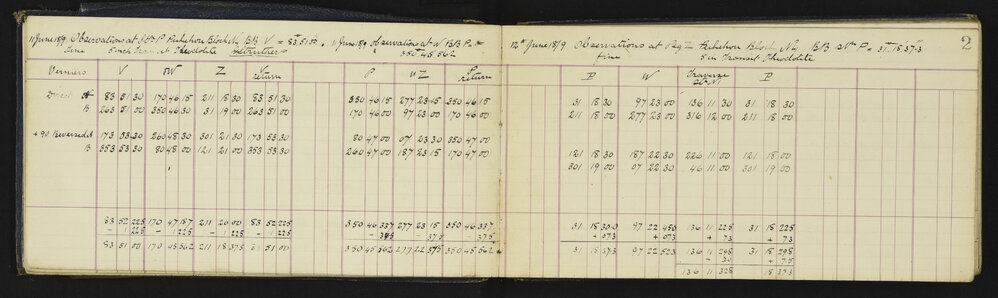 11 June 18/9 Observations at Stn P Block N BB V = 83.51.00
fine 5 inch Transit Theodolite
11 June 18/9 Observations at W BB P =
350.45.562
12th June 18/9 Observations at Peg Z Block N BB Stn P = 31.18.37.3 2
fine 5 in Transit Theodolite
Verniers V W Z V return P Z P return P W Traverse P
Direct A 83 51 30 170 46 15 211 18 30 83 51 30 350 46 15 277 23 15 350 46 15 31 18 30 97 23 00 136 11 30 31 18 30
B 263 51 00 350 46 30 31 19 00 263 51 00 170 46 00 97 23 00 170 46 00 211 18 00 277 23 00 316 12 00 211 18 00
+90 Reversed A 173 53 30 260 48 30 301 21 30 173 53 30 80 47 00 07 23 30 350 47 00
B 353 53 30 80 48 00 121 21 00 353 53 30 260 47 00 187 23 15 170 47 00 121 18 30 187 22 30 226 11 00 121 18 00
301 19 00 07 22 30 46 11 00 301 19 00
83 52 225 170 47 187 211 20 00 83 52 225 350 46 337 277 23 15 350 46 337 31 18 300 97 22 450 136 11 225 31 18 225
- 1 225 - 1 225 1 225 - 1 225 - 375 375 375 + 073 + 073 + 73 + 73
83 51 00 170 45 562 211 18 375 83 51 00 350 45 562 277 22 375 350 45 562 31 18 373 97 22 523 136 11 298 18 298
+ 30 + 75
136 11 328 18 373